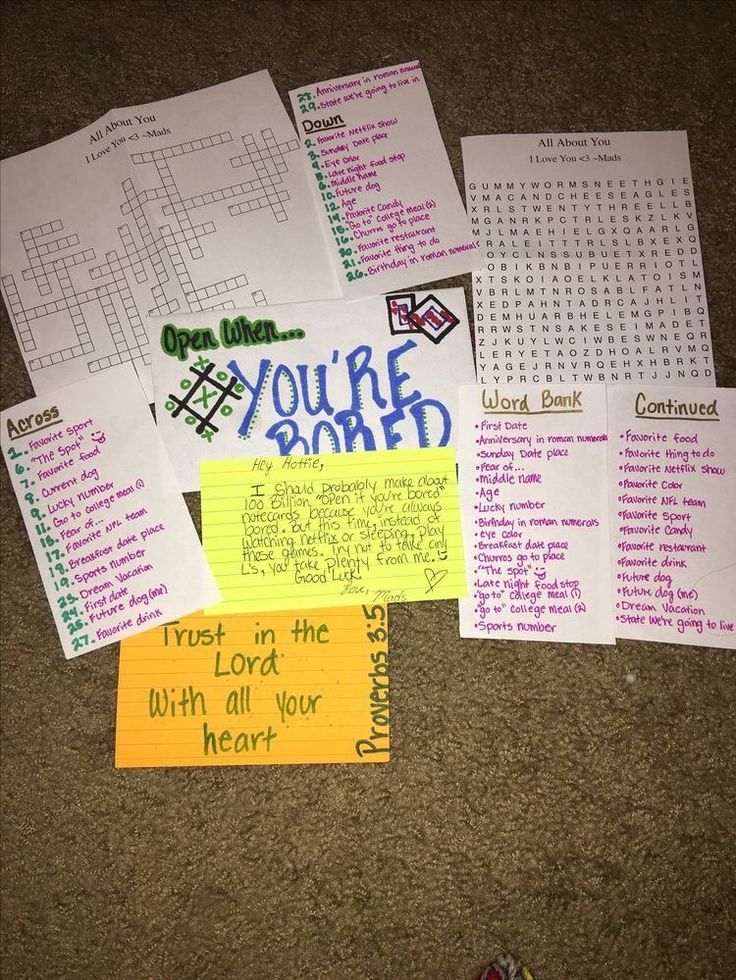 All About You
I Love You <3 ~Mads
28. Anniversary in roman numerals
29. State we're going to live in
Down
2. Favorite Netflix show
3. Sunday Date place
4. Eye color
5. Late night food stop
6. Middle name
10. Future dog
12. Age
14. Favorite Candy
15. "Go to" College meal (2)
16. Churros go to place
20. Favorite restaurant
21. Favorite thing to do
26. Birthday in roman numeral
All About You
I Love You <3 ~Mads
GUMMYWORMSNEETHGIE
VMACANDCHEESEAGLES
XRLSTWENTYTHREELLB
MGANRKPCTRLESKZLKV
MJLMAEHIELGXQAARLG
RALEITTTRLSLBXEXQ
OYCLNSSUBUETXREDD
OBIKBNBIPUERRIOTL
XTSKOIAOELKLATOISM
VBRLMTNROSABLFATLN
XEDPAHNTADRCAJHLIT
DEMHUARBHELEMGPIBQ
RRWSTNSAKESEIMADET
ZJKUYLWCIWBESWNEQR
LERYETAOZDHOALRVEQ
YAGEJRNVRQEHXHBRKT
LYPRCBLTWBNRTJJNQD
Open When...
YOU'RE
BORED
Across
2. Favorite Sport
6. "The Spot"
7. Favorite food
8. Current dog
9. Lucky number
11. Go to college meal (1)
13. Fear of...
17. Favorite NFL team
18. Breakfast date place
19. Sports number
23. Dream Vacation
24. First date
25. Future dog (me)
27. Favorite drink
Hey Hottie,
I should probably make about
100 Billion "open if you're bored"
notecards because you're always
bored. but this time, instead of
watching netflix or sleeping, play
these games. Try not to take any
L's, you take plenty from me.
Good Luck
Love, Mads
Word Bank
•First Date
•Anniversary in roman numerals
•Sunday Date place
•Fear of...
•Middle name
•Age
•Lucky number
•Birthday in roman numerals
•eye color
•Breakfast date place
•Churros go to place
•"The spot"
•Late night food stop
•"go to" college meal (1)
•"go to" college meal (2)
•Sports number
Continued
•Favorite food
•Favorite thing to do
•Favorite Netflix show
•Favorite Color
•Favorite NFL team
•Favorite sport
•Favorite Candy
•Favorite restaurant
•Favorite drink
•Future dog
•Future dog (me)
•Dream Vacation
•State we're going to live
Trust in the
Lord
With all your
heart
Proverbs 3:5